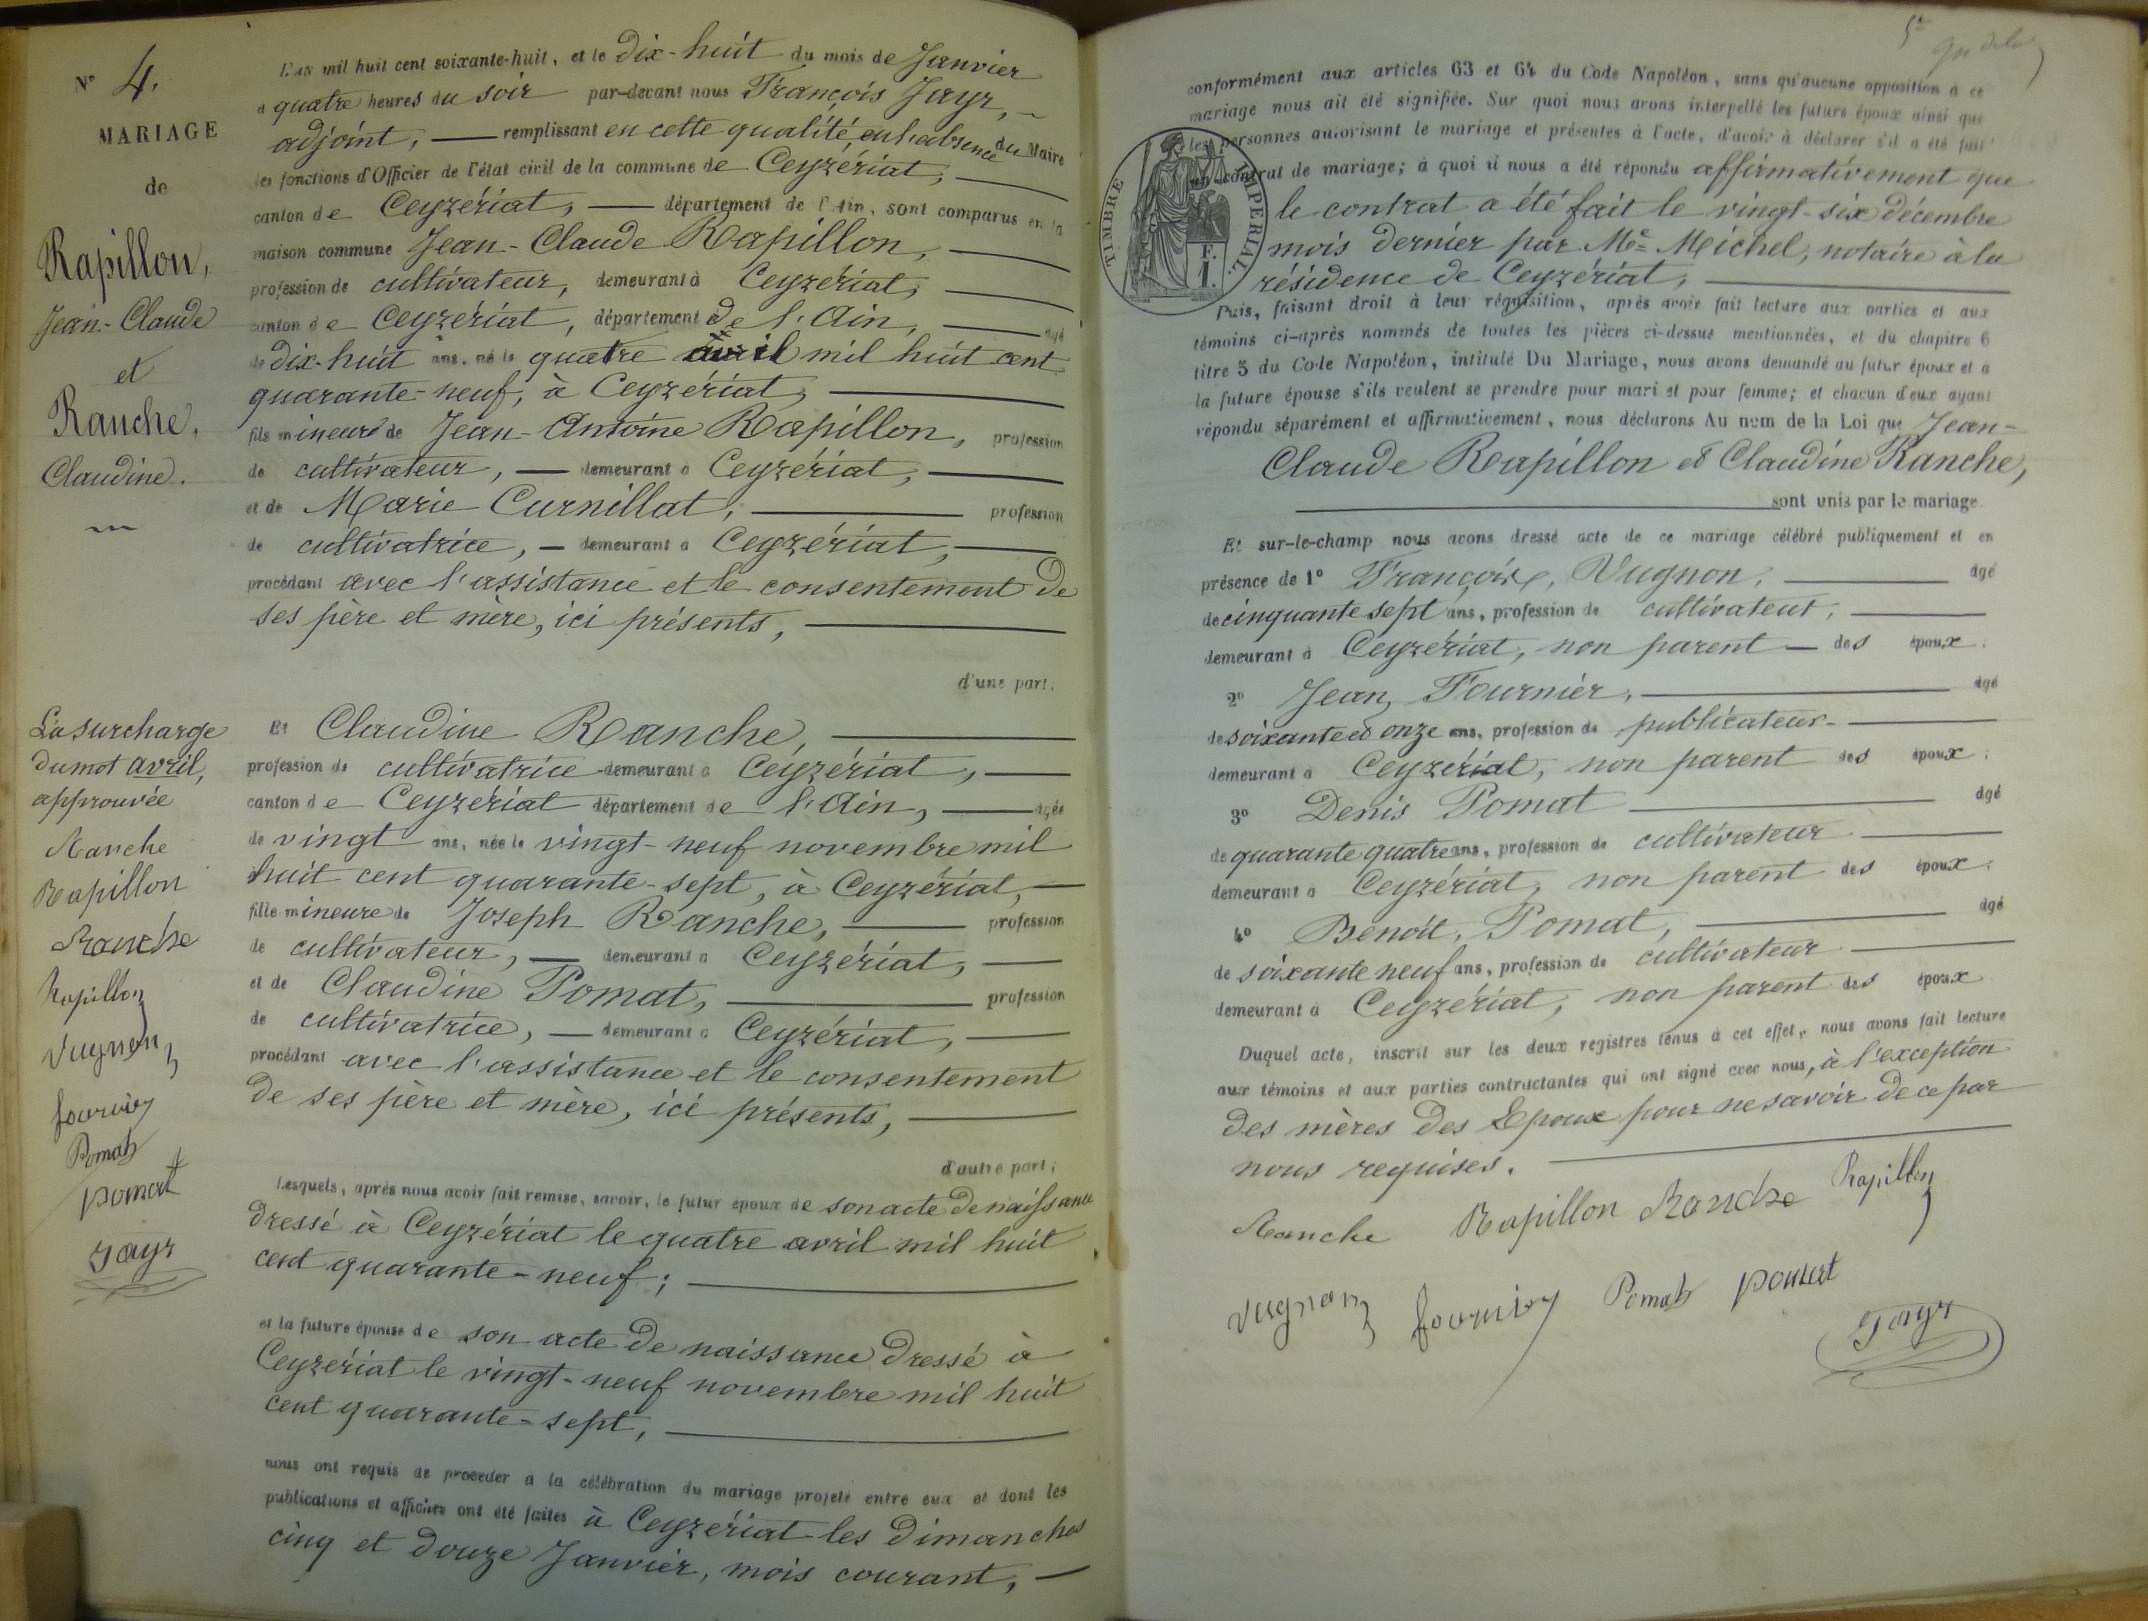 N° 4.
MARIAGE
de
Rapillon,
Jean-Claude
et
Ranche,
Claudine.
La surcharge
du mot avril,
approuvée
Ranche
Rapillon
Ranche
Rapillon
Vugnon
fournier
Pomat
pomat
Jayr
L'an mil huit cent soixante-huit, et le dix-huit du mois de Janvier
à quatre heures du soir par-devant nous François Jayr,
adjoint, remplissant en cette qualité, en l'absence du Maire
les fonctions d'Officier de l'état civil de la commune de Ceyzériat,
canton de Ceyzériat, département de l'Ain, sont comparus en la
maison commune Jean-Claude Rapillon,
profession de cultivateur, demeurant à Ceyzériat,
canton de Ceyzériat, département de l'Ain, âgé
de dix-huit ans, né le quatre avril mil huit cent
quarante-neuf, à Ceyzériat,
fils mineur de Jean-Antoine Rapillon, profession
de cultivateur, demeurant à Ceyzériat,
et de Marie Curnillat, profession
de cultivatrice, demeurant à Ceyzériat,
procédant avec l'assistance et le consentement de
ses père et mère, ici présents,
d'une part.
Et Claudine Ranche,
profession de cultivatrice demeurant à Ceyzériat,
canton de Ceyzériat département de l'Ain, âgée
de vingt ans, née le vingt-neuf novembre mil
huit cent quarante-sept, à Ceyzériat,
fille mineure de Joseph Ranche, profession
de cultivateur, demeurant à Ceyzériat,
et de Claudine Pomat, profession
de cultivatrice, demeurant à Ceyzériat,
procédant avec l'assistance et le consentement
de ses père et mère, ici présents,
d'autre part;
Lesquels, après nous avoir fait remise, savoir, le futur époux de son acte de naissance
dressé à Ceyzériat le quatre avril mil huit
cent quarante-neuf;
et la future épouse de son acte de naissance dressé à
Ceyzériat le vingt-neuf novembre mil huit
cent quarante-sept,
nous ont requis de procéder à la célébration du mariage projeté entre eux et dont les
publications et affiches ont été faites à Ceyzériat les dimanches
cinq et douze Janvier, mois courant,
conformément aux articles 63 et 64 du Code Napoléon, sans qu'aucune opposition à ce
mariage nous ait été signifiée. Sur quoi nous avons interpellé les futurs époux ainsi que
les personnes autorisant le mariage et présentes à l'acte, d'avoir à déclarer s'il a été fait
un contrat de mariage; à quoi il nous a été répondu affirmativement que
le contrat a été fait le vingt-six décembre
mois dernier par Me Michel, notaire à la
résidence de Ceyzériat,
TIMBRE IMPERIAL.
F.
1.
Puis, faisant droit à leur réquisition, après avoir fait lecture aux parties et aux
témoins ci-après nommés de toutes les pièces ci-dessus mentionnées, et du chapitre 6
titre 5 du Code Napoléon, intitulé Du Mariage, nous avons demandé au futur époux et à
la future épouse s'ils veulent se prendre pour mari et pour femme; et chacun d'eux ayant
répondu séparément et affirmativement, nous déclarons Au nom de la Loi que Jean-
Claude Rapillon et Claudine Ranche,
sont unis par le mariage.
Et sur-le-champ nous avons dressé acte de ce mariage célébré publiquement et en
présence de 1° François, Vugnon, âgé
de cinquante sept ans, profession de cultivateur,
demeurant à Ceyzériat, non parent des époux.
2° Jean, Fournier, âgé
de soixante et onze ans, profession de publicateur
demeurant à Ceyzériat, non parent des époux.
3° Denis Pomat âgé
de quarante quatre ans, profession de cultivateur
demeurant à Ceyzériat, non parent des époux.
4° Benoit, Pomat, âgé
de soixante neuf ans, profession de cultivateur
demeurant à Ceyzériat, non parent des époux
Duquel acte, inscrit sur les deux registres tenus à cet effet, nous avons fait lecture
aux témoins et aux parties contractantes qui ont signé avec nous, à l'exception
des mères des Epoux pour ne savoir de ce par
nous requises.
Ranche Rapillon Ranche Rapillon
Vugnon fournier Pomat pomat
Jayr